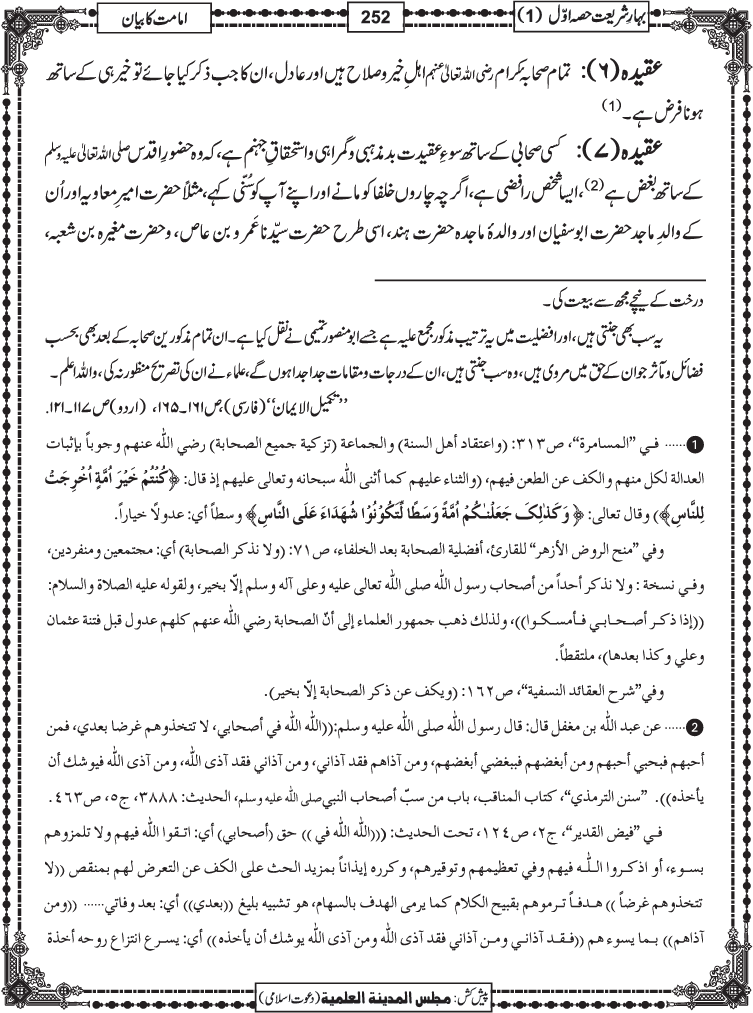 بہارِ شریعت حصہ اوّل (1)
252
امامت کا بیان
عقیدہ (۶): تمام صحابہ کرام رضی اللہ تعالیٰ عنہم اہلِ خیر و صلاح ہیں اور عادل، ان کا جب ذکر کیا جائے تو خیر ہی کے ساتھ
ہونا فرض ہے۔ (1)
عقیدہ (۷): کسی صحابی کے ساتھ سوءِ عقیدت بد مذہبی و گمراہی و استحقاقِ جہنم ہے، کہ وہ حضورِ اقدس صلی اللہ تعالیٰ علیہ وسلم
کے ساتھ بغض ہے (2)، ایسا شخص رافضی ہے، اگرچہ چاروں خلفا کو مانے اور اپنے آپ کو سُنّی کہے، مثلاً حضرت امیرِ معاویہ اور اُن
کے والدِ ماجد حضرت ابوسفیان اور والدۂ ماجدہ حضرت ہند، اسی طرح حضرت سیّدنا عَمرو بن عاص، و حضرت مغیرہ بن شعبہ،
درخت کے نیچے مجھ سے بیعت کی۔
یہ سب بھی جنتی ہیں، اور افضلیت میں یہ ترتیب مذکور مجمع علیہ ہے جسے ابو منصور تمیمی نے نقل کیا ہے۔ ان تمام مذکورین صحابہ کے بعد بھی بحسب
فضائل و مآثر جو ان کے حق میں مروی ہیں، وہ سب جنتی ہیں، ان کے درجات و مقامات جدا جدا ہوں گے، علماء نے ان کی تصریح منظور نہ کی، واللہ اعلم۔
”تکمیل الایمان“ (فارسی)، ص۱۶۱۔۱۶۵، (اردو) ص۱۱۷۔۱۲۱.
1...... في ”المسامرة“، ص٣١٣: (واعتقاد أهل السنة) والجماعة (تزكية جميع الصحابة) رضي الله عنهم وجوباً بإثبات
العدالة لكل منهم والكف عن الطعن فيهم، (والثناء عليهم كما أثنى الله سبحانه وتعالى عليهم إذ قال: ﴿كُنْتُمْ خَيْرَ اُمَّةٍ اُخْرِجَتْ
لِلنَّاسِ﴾) وقال تعالى: ﴿وَكَذٰلِكَ جَعَلْنٰكُمْ اُمَّةً وَسَطًا لِّتَكُوْنُوْا شُهَدَاءَ عَلَى النَّاسِ﴾ وسطاً أي: عدولاً خياراً.
وفي ”منح الروض الأزهر“ للقارئ، أفضلية الصحابة بعد الخلفاء، ص٧١: (ولا نذكر الصحابة) أي: مجتمعين ومنفردين،
وفي نسخة: ولا نذكر أحداً من أصحاب رسول الله صلى الله تعالى عليه وعلى آله وسلم إلّا بخير، ولقوله عليه الصلاة والسلام:
((إذا ذكر أصحابي فأمسكوا))، ولذلك ذهب جمهور العلماء إلى أنّ الصحابة رضي الله عنهم كلهم عدول قبل فتنة عثمان
وعلي وكذا بعدها)، ملتقطاً.
وفي”شرح العقائد النسفية“، ص١٦٢: (ويكف عن ذكر الصحابة إلّا بخير).
2...... عن عبد الله بن مغفل قال: قال رسول الله صلى الله عليه وسلم:((الله الله في أصحابي، لا تتخذوهم غرضا بعدي، فمن
أحبهم فبحبي أحبهم ومن أبغضهم فببغضي أبغضهم، ومن آذاهم فقد آذاني، ومن آذاني فقد آذى الله، ومن آذى الله فيوشك أن
يأخذه)). ”سنن الترمذي“، كتاب المناقب، باب من سبّ أصحاب النبي صلى الله عليه وسلم، الحديث: ٣٨٨٨، ج٥، ص٤٦٣.
في ”فيض القدير“، ج٢، ص١٢٤، تحت الحديث: (((الله الله في)) حق (أصحابي) أي: اتقوا الله فيهم ولا تلمزوهم
بسوء، أو اذكروا الله فيهم وفي تعظيمهم وتوقيرهم، وكرره إيذاناً بمزيد الحث على الكف عن التعرض لهم بمنقص ((لا
تتخذوهم غرضاً)) هدفاً ترموهم بقبيح الكلام كما يرمى الهدف بالسهام، هو تشبيه بليغ ((بعدي)) أي: بعد وفاتي...... ((ومن
آذاهم)) بما يسوءهم ((فقد آذاني ومن آذاني فقد آذى الله ومن آذى الله يوشك أن يأخذه)) أي: يسرع انتزاع روحه أخذة
پیش کش: مجلس المدینة العلمیة (دعوت اسلامی)